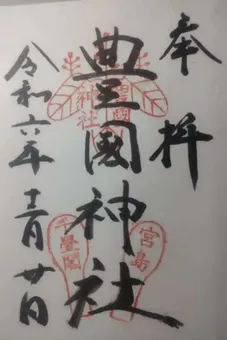 奉拝
豊國神社
豊國
神社
千畳閣
宮島
令和六年十一月廿日